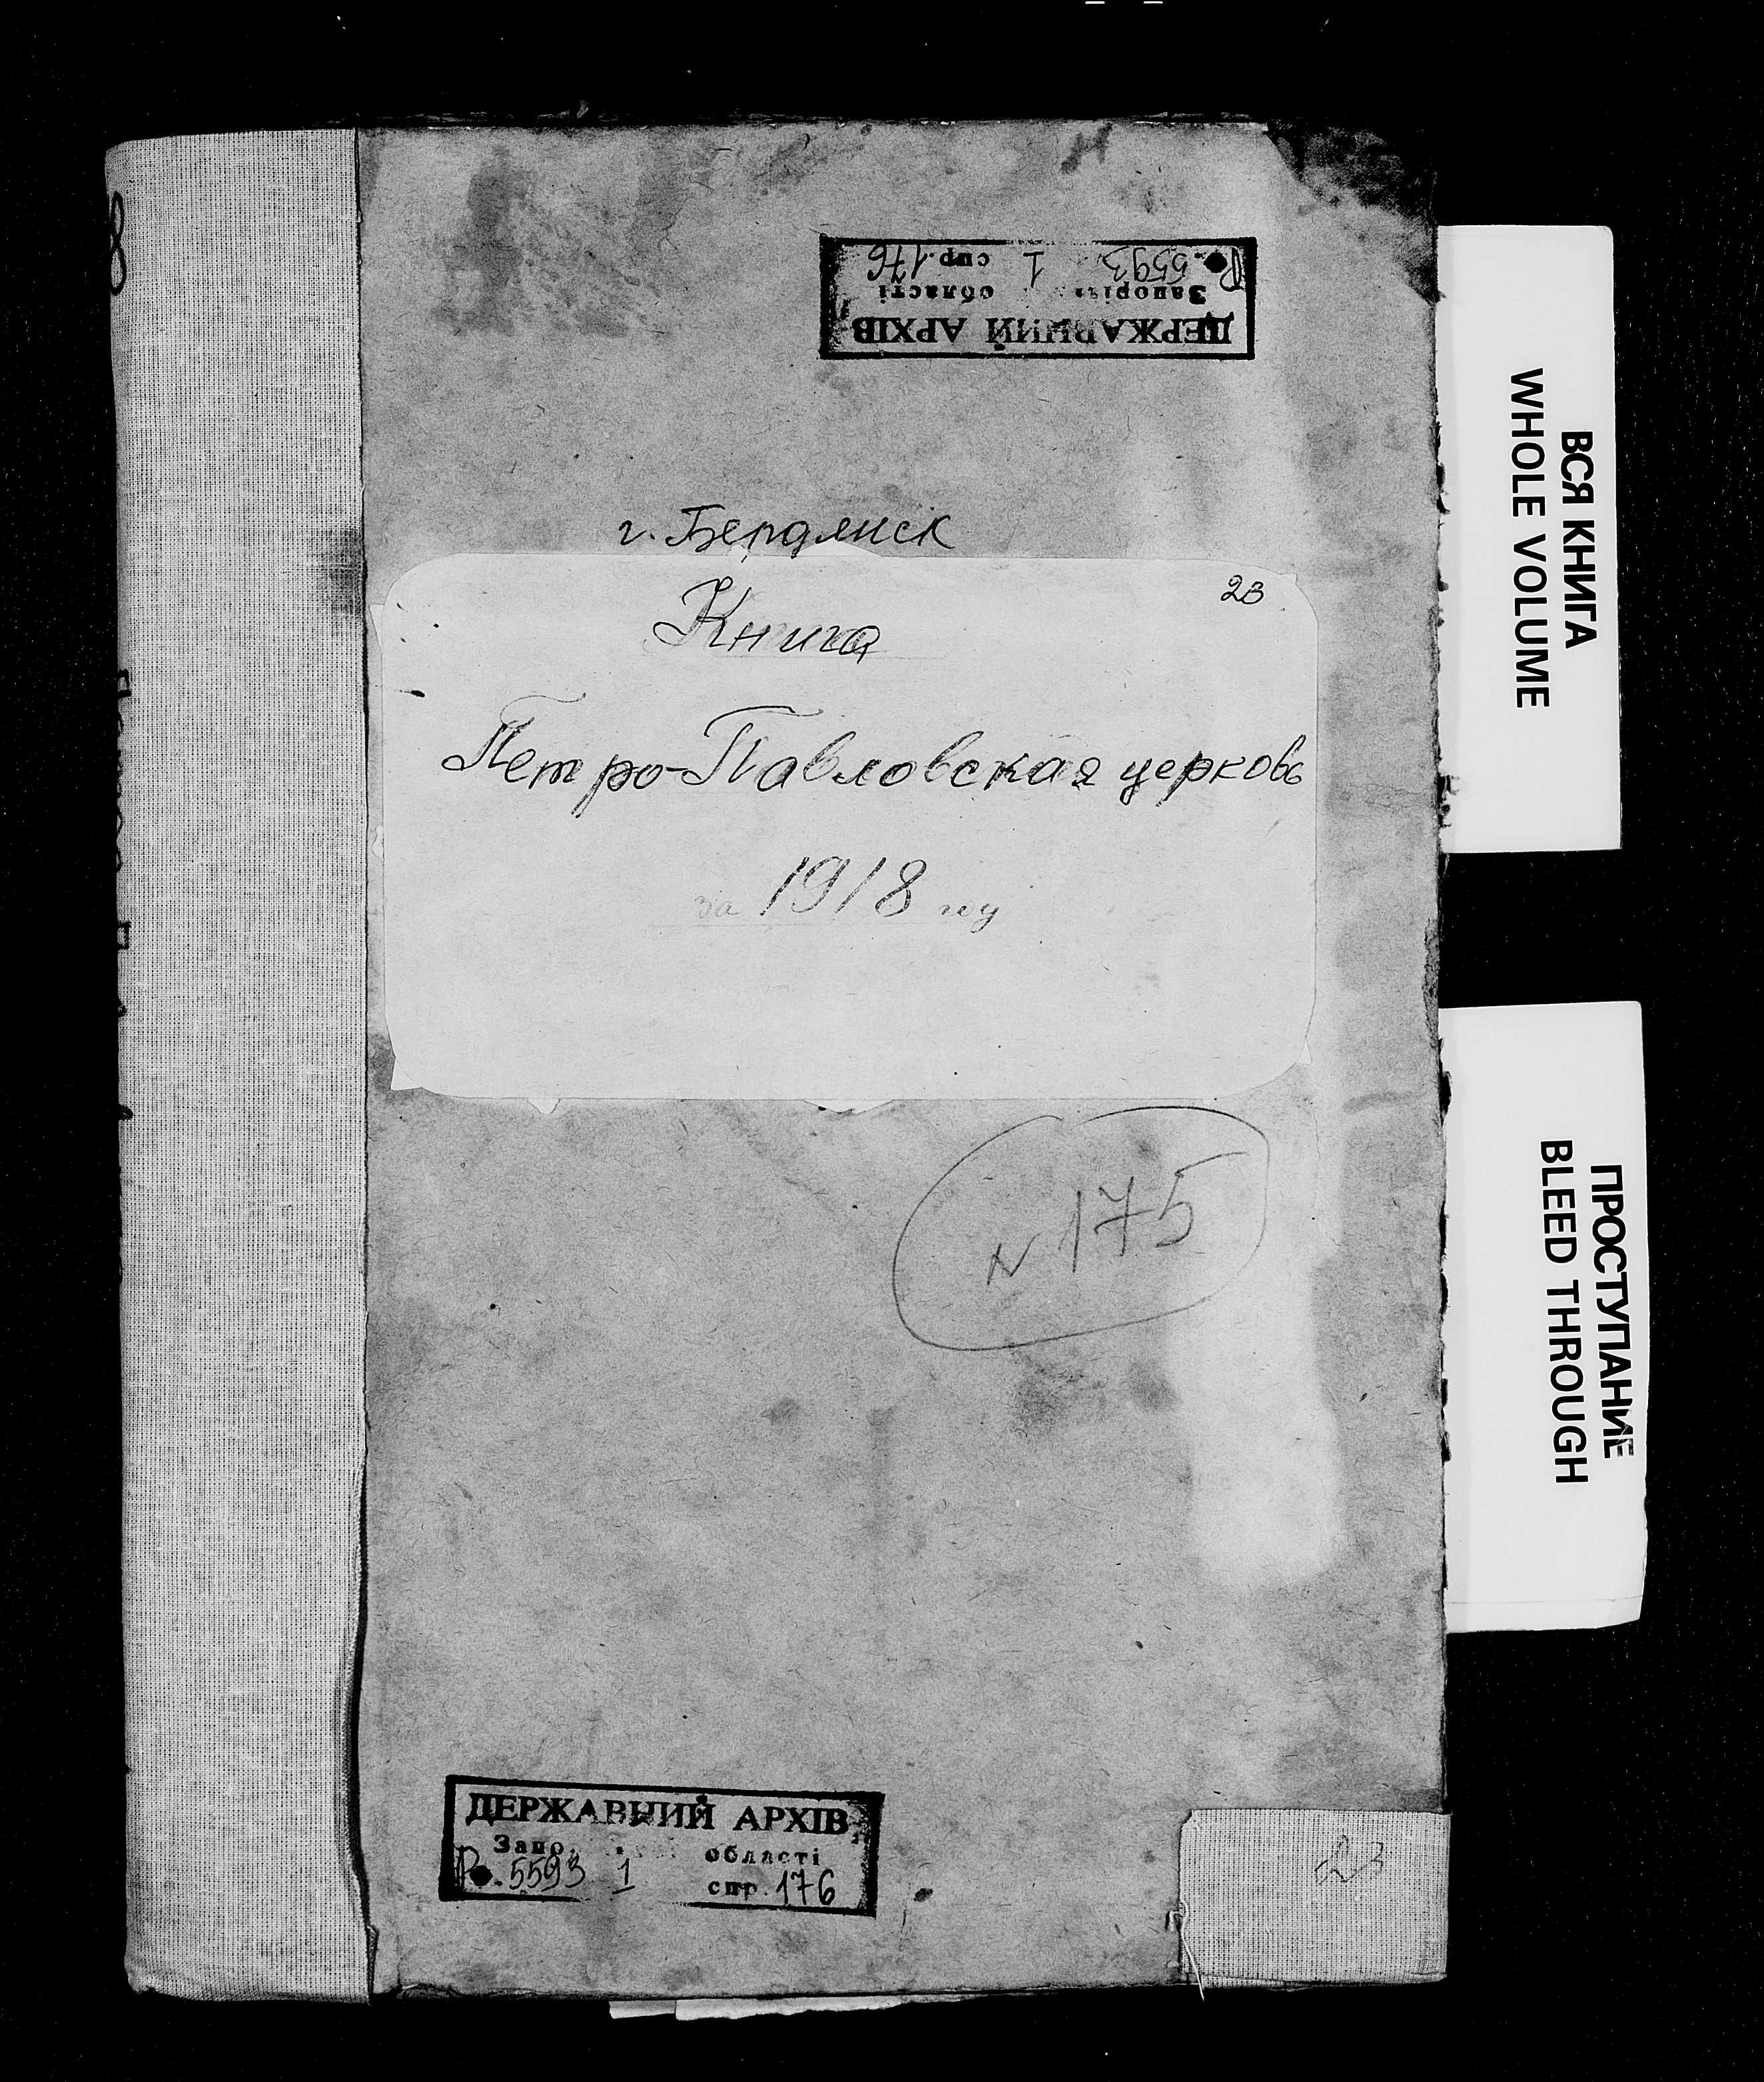 ДЕРЖАВНИЙ АРХІВ
області
Р. 5593 1 спр. 176
г. Бердянск
23
Книга
Петро-Павловская церковь
за 1918 год
N 175
ДЕРЖАВНИЙ АРХІВ
області
Р. 5593 1 спр. 176
23
ВСЯ КНИГА
WHOLE VOLUME
ПРОСТУПАНИЕ
BLEED THROUGH